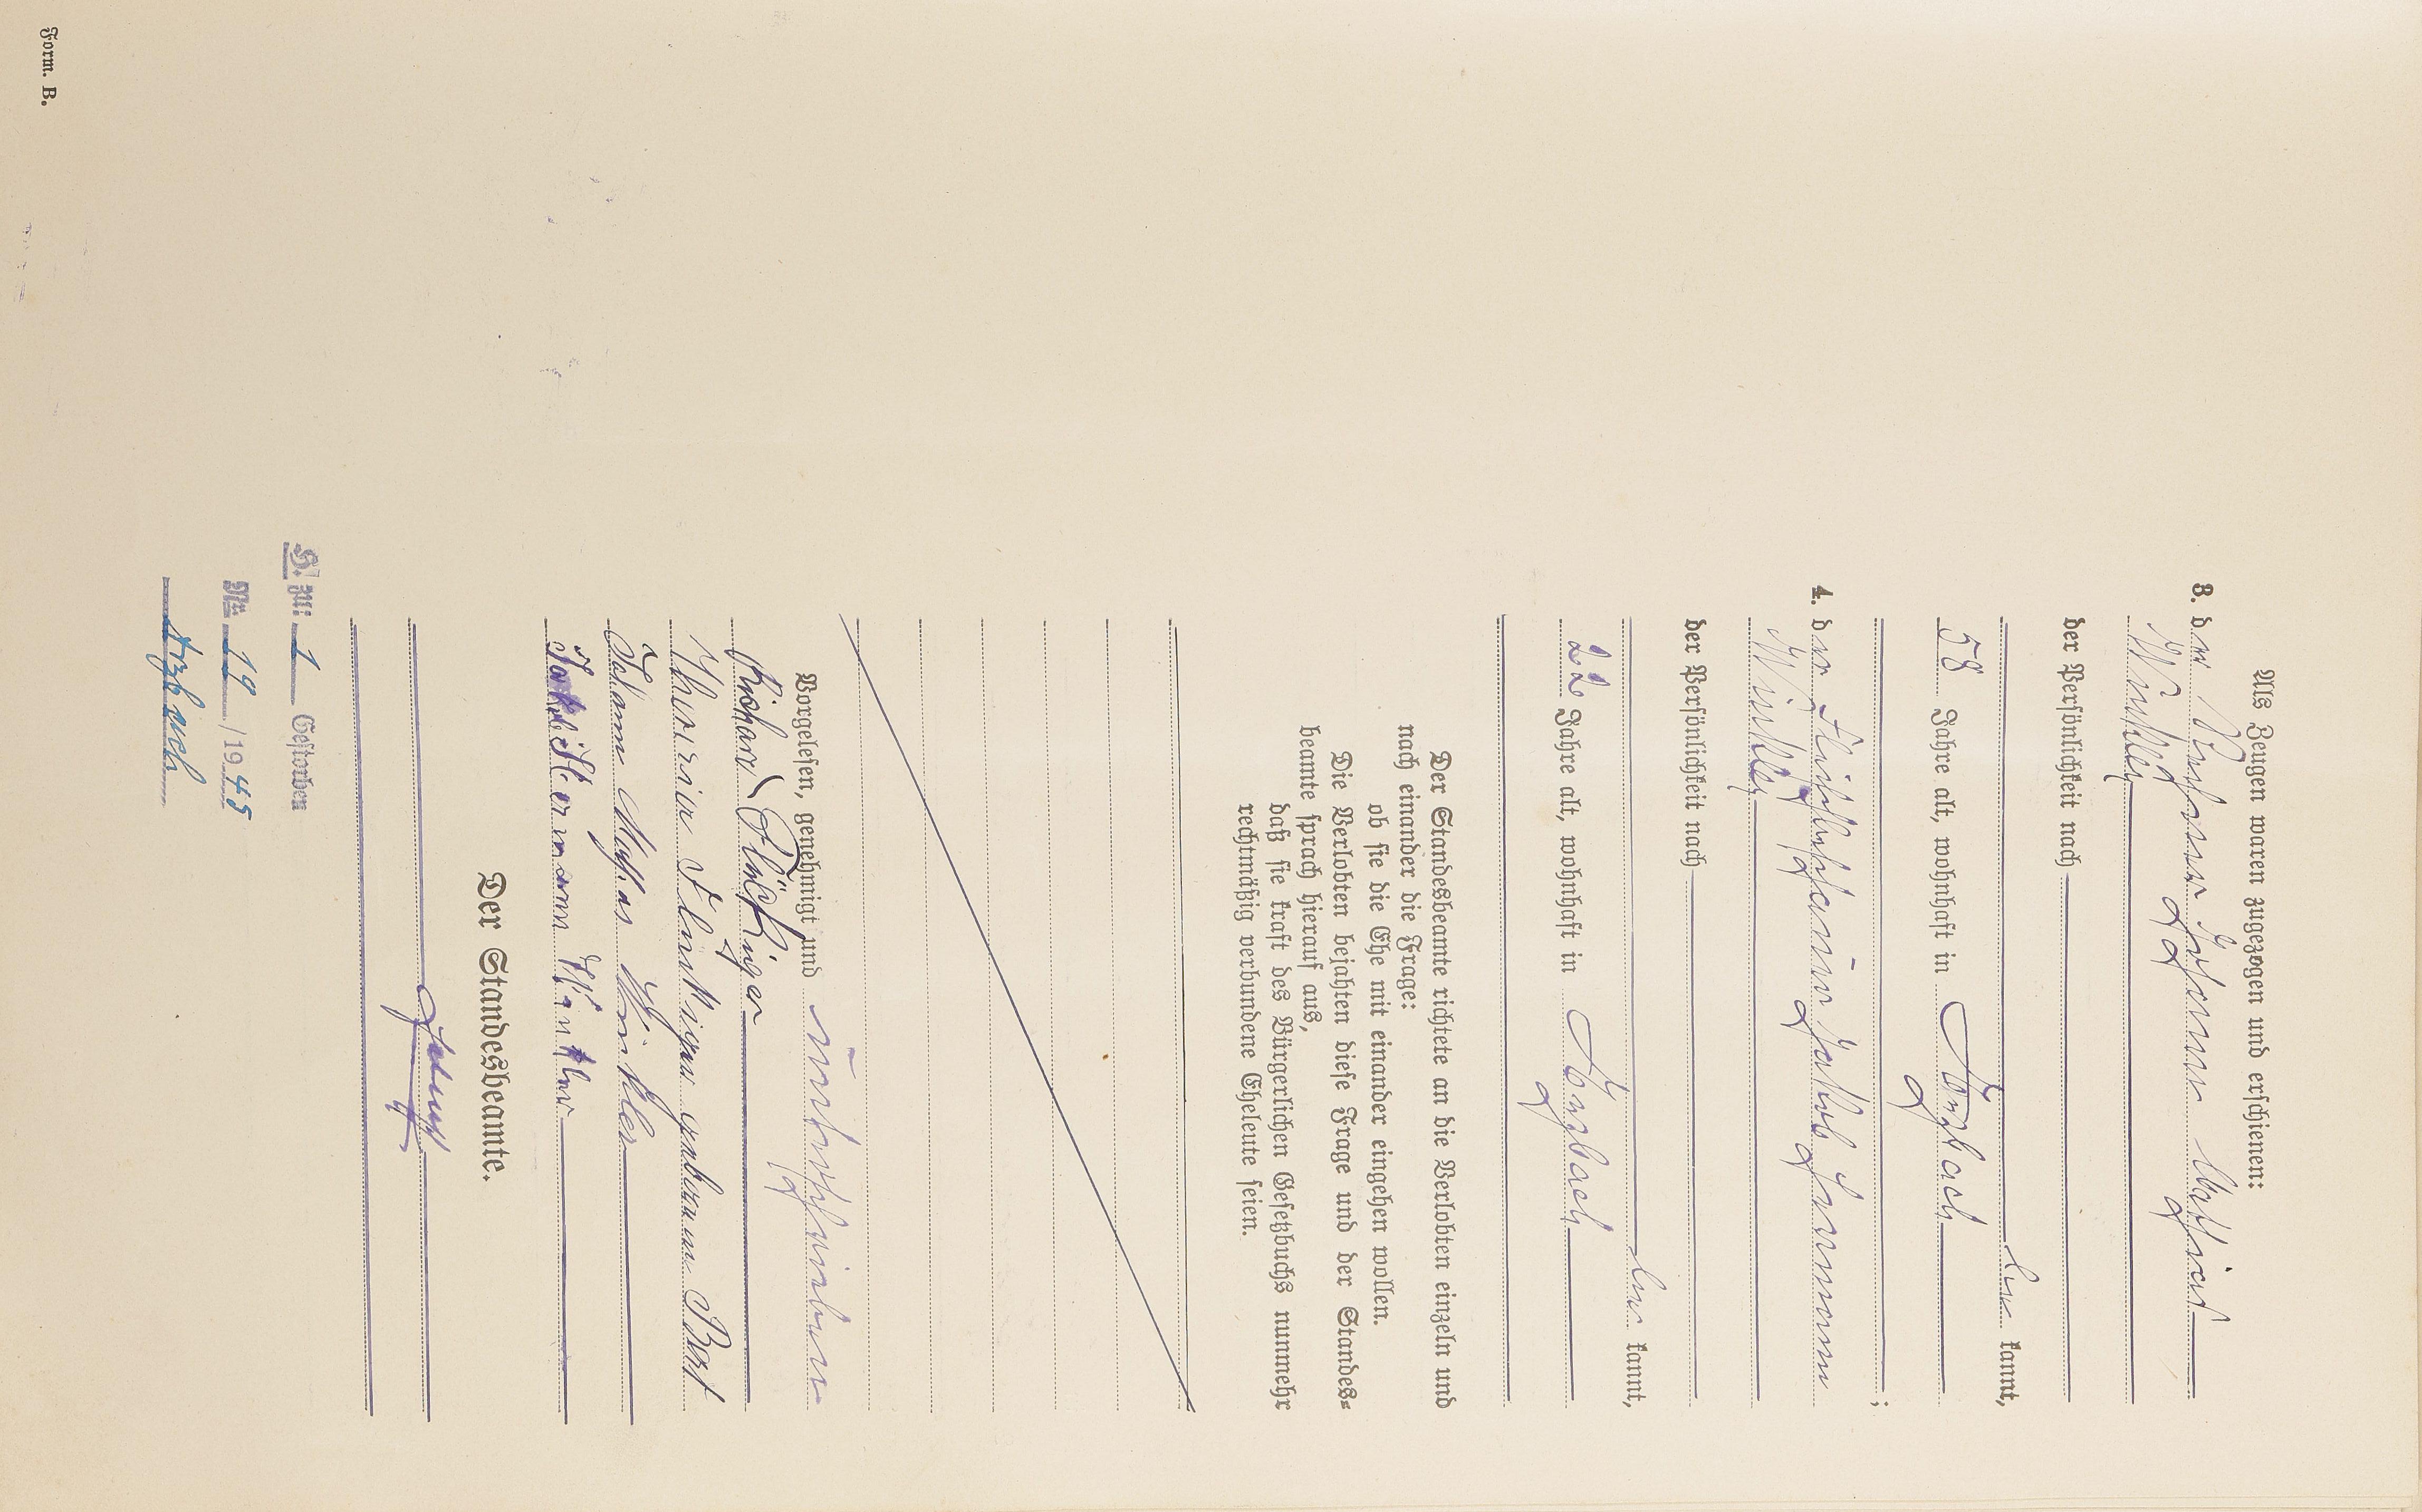 Als Zeugen waren zugezogen und erschienen:
3. der Johann Mathias
Winkler
der Persönlichkeit nach
be kannt,
58 Jahre alt, wohnhaft in
;
4. der Jakob Hermann
Winkler
der Persönlichkeit nach
be kannt,
22 Jahre alt, wohnhaft in
Der Standesbeamte richtete an die Verlobten einzeln und
nach einander die Frage:
ob sie die Ehe mit einander eingehen wollen.
Die Verlobten bejahten diese Frage und der Standes-
beamte sprach hierauf aus,
daß sie kraft des Bürgerlichen Gesetzbuchs nunmehr
rechtmäßig verbundene Eheleute seien.
Vorgelesen, genehmigt und unterschrieben
Richard Flückiger
Theresia Flückiger geborene Bost
Johann Mathias Winkler
Jakob Hermann Winkler
Der Standesbeamte.
H. zu: 1 Gestorben
Nr. 19 /19 45
Form. B.